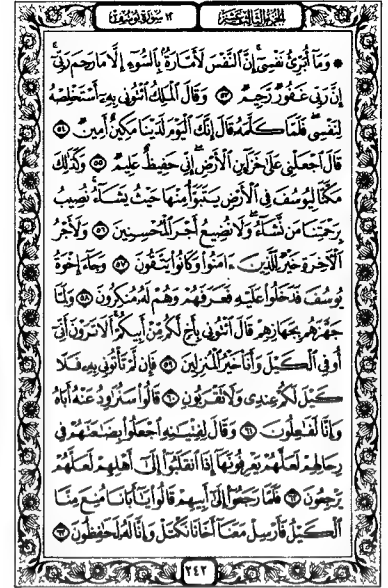 الجزء الثالث عشر ١٢ سورة يوسف
۞ وَمَآ أُبَرِّئُ نَفْسِىٓ ۚ إِنَّ ٱلنَّفْسَ لَأَمَّارَةٌۢ بِٱلسُّوٓءِ إِلَّا مَا رَحِمَ رَبِّىٓ ۚ
إِنَّ رَبِّى غَفُورٌ رَّحِيمٌ ٥٣ وَقَالَ ٱلْمَلِكُ ٱئْتُونِى بِهِۦٓ أَسْتَخْلِصْهُ
لِنَفْسِى ۖ فَلَمَّا كَلَّمَهُۥ قَالَ إِنَّكَ ٱلْيَوْمَ لَدَيْنَا مَكِينٌ أَمِينٌ ٥٤
قَالَ ٱجْعَلْنِى عَلَىٰ خَزَآئِنِ ٱلْأَرْضِ ۖ إِنِّى حَفِيظٌ عَلِيمٌ ٥٥ وَكَذَٰلِكَ
مَكَّنَّا لِيُوسُفَ فِى ٱلْأَرْضِ يَتَبَوَّأُ مِنْهَا حَيْثُ يَشَآءُ ۚ نُصِيبُ
بِرَحْمَتِنَا مَن نَّشَآءُ ۖ وَلَا نُضِيعُ أَجْرَ ٱلْمُحْسِنِينَ ٥٦ وَلَأَجْرُ
ٱلْـَٔاخِرَةِ خَيْرٌ لِّلَّذِينَ ءَامَنُوا۟ وَكَانُوا۟ يَتَّقُونَ ٥٧ وَجَآءَ إِخْوَةُ
يُوسُفَ فَدَخَلُوا۟ عَلَيْهِ فَعَرَفَهُمْ وَهُمْ لَهُۥ مُنكِرُونَ ٥٨ وَلَمَّا
جَهَّزَهُم بِجَهَازِهِمْ قَالَ ٱئْتُونِى بِأَخٍ لَّكُم مِّنْ أَبِيكُمْ ۚ أَلَا تَرَوْنَ أَنِّىٓ
أُوفِى ٱلْكَيْلَ وَأَنَا۠ خَيْرُ ٱلْمُنزِلِينَ ٥٩ فَإِن لَّمْ تَأْتُونِى بِهِۦ فَلَا
كَيْلَ لَكُمْ عِندِى وَلَا تَقْرَبُونِ ٦٠ قَالُوا۟ سَنُرَٰوِدُ عَنْهُ أَبَاهُ
وَإِنَّا لَفَٰعِلُونَ ٦١ وَقَالَ لِفِتْيَٰنِهِ ٱجْعَلُوا۟ بِضَٰعَتَهُمْ فِى
رِحَالِهِمْ لَعَلَّهُمْ يَعْرِفُونَهَآ إِذَا ٱنقَلَبُوٓا۟ إِلَىٰٓ أَهْلِهِمْ لَعَلَّهُمْ
يَرْجِعُونَ ٦٢ فَلَمَّا رَجَعُوٓا۟ إِلَىٰٓ أَبِيهِمْ قَالُوا۟ يَٰٓأَبَانَا مُنِعَ مِنَّا
ٱلْكَيْلُ فَأَرْسِلْ مَعَنَآ أَخَانَا نَكْتَلْ وَإِنَّا لَهُۥ لَحَٰفِظُونَ ٦٣
٢٤٢